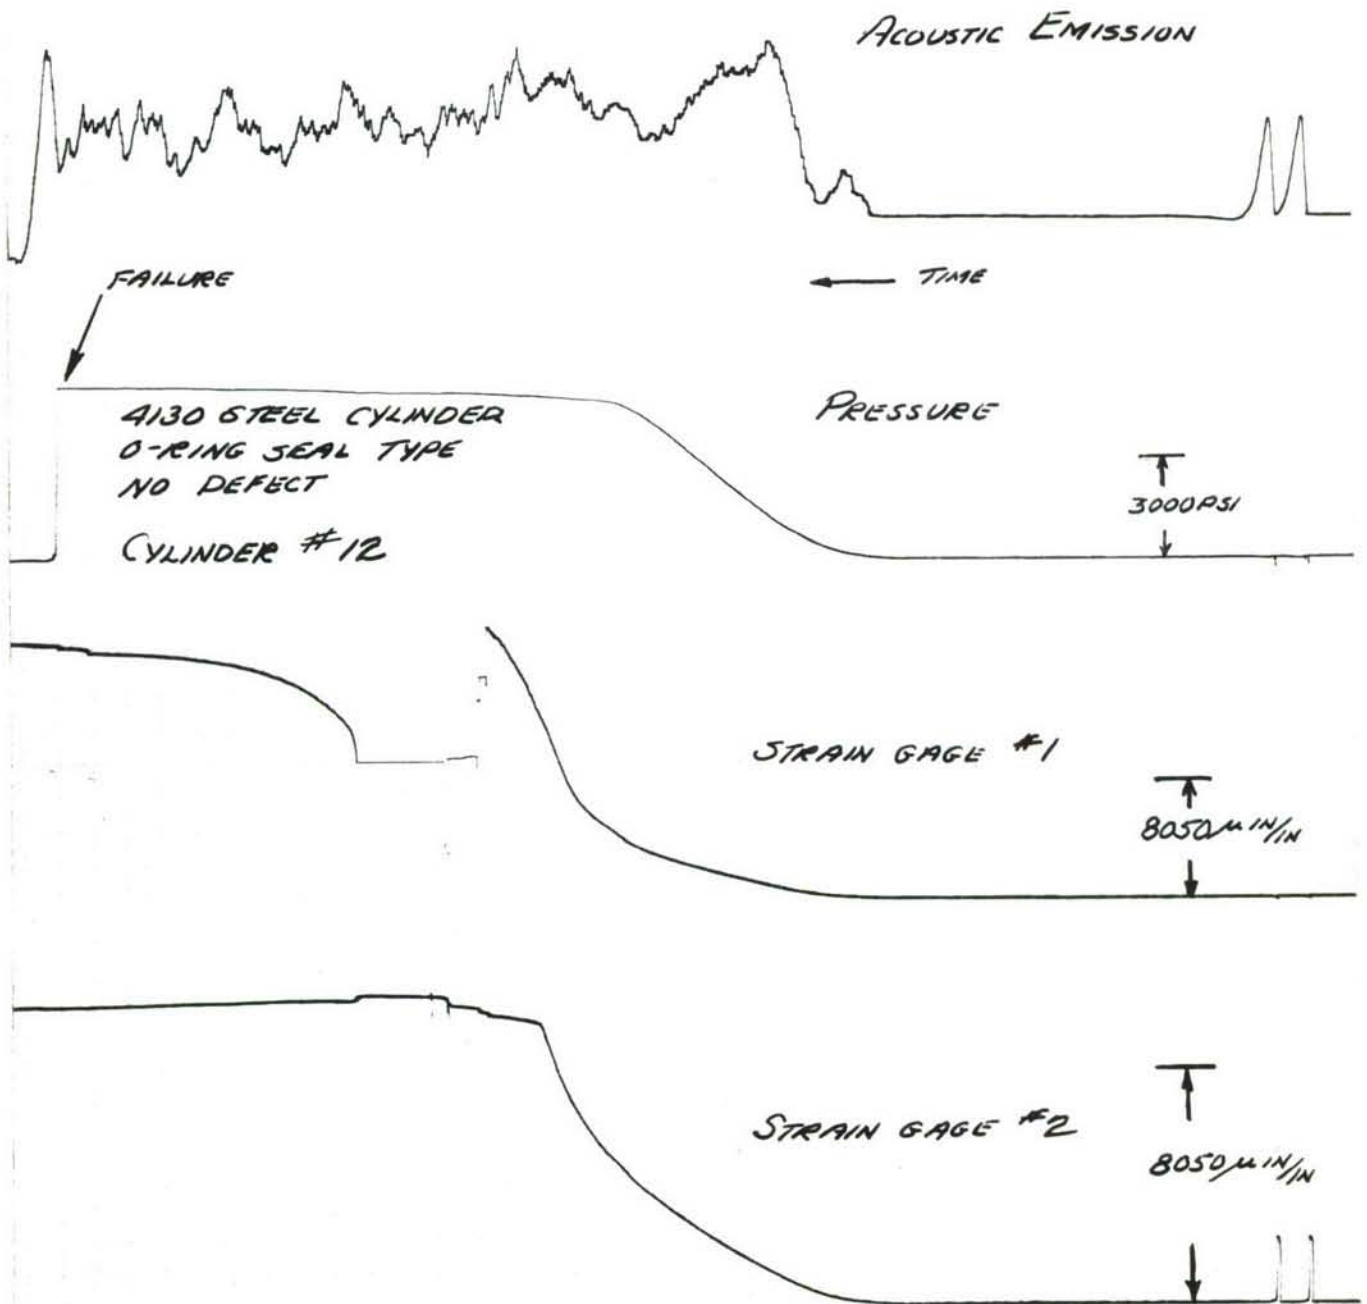 ACOUSTIC EMISSION
FAILURE
TIME
4130 STEEL CYLINDER
O-RING SEAL TYPE
NO DEFECT
CYLINDER #12
PRESSURE
3000 PSI
STRAIN GAGE #1
8050 μ IN/IN
STRAIN GAGE #2
8050 μ IN/IN